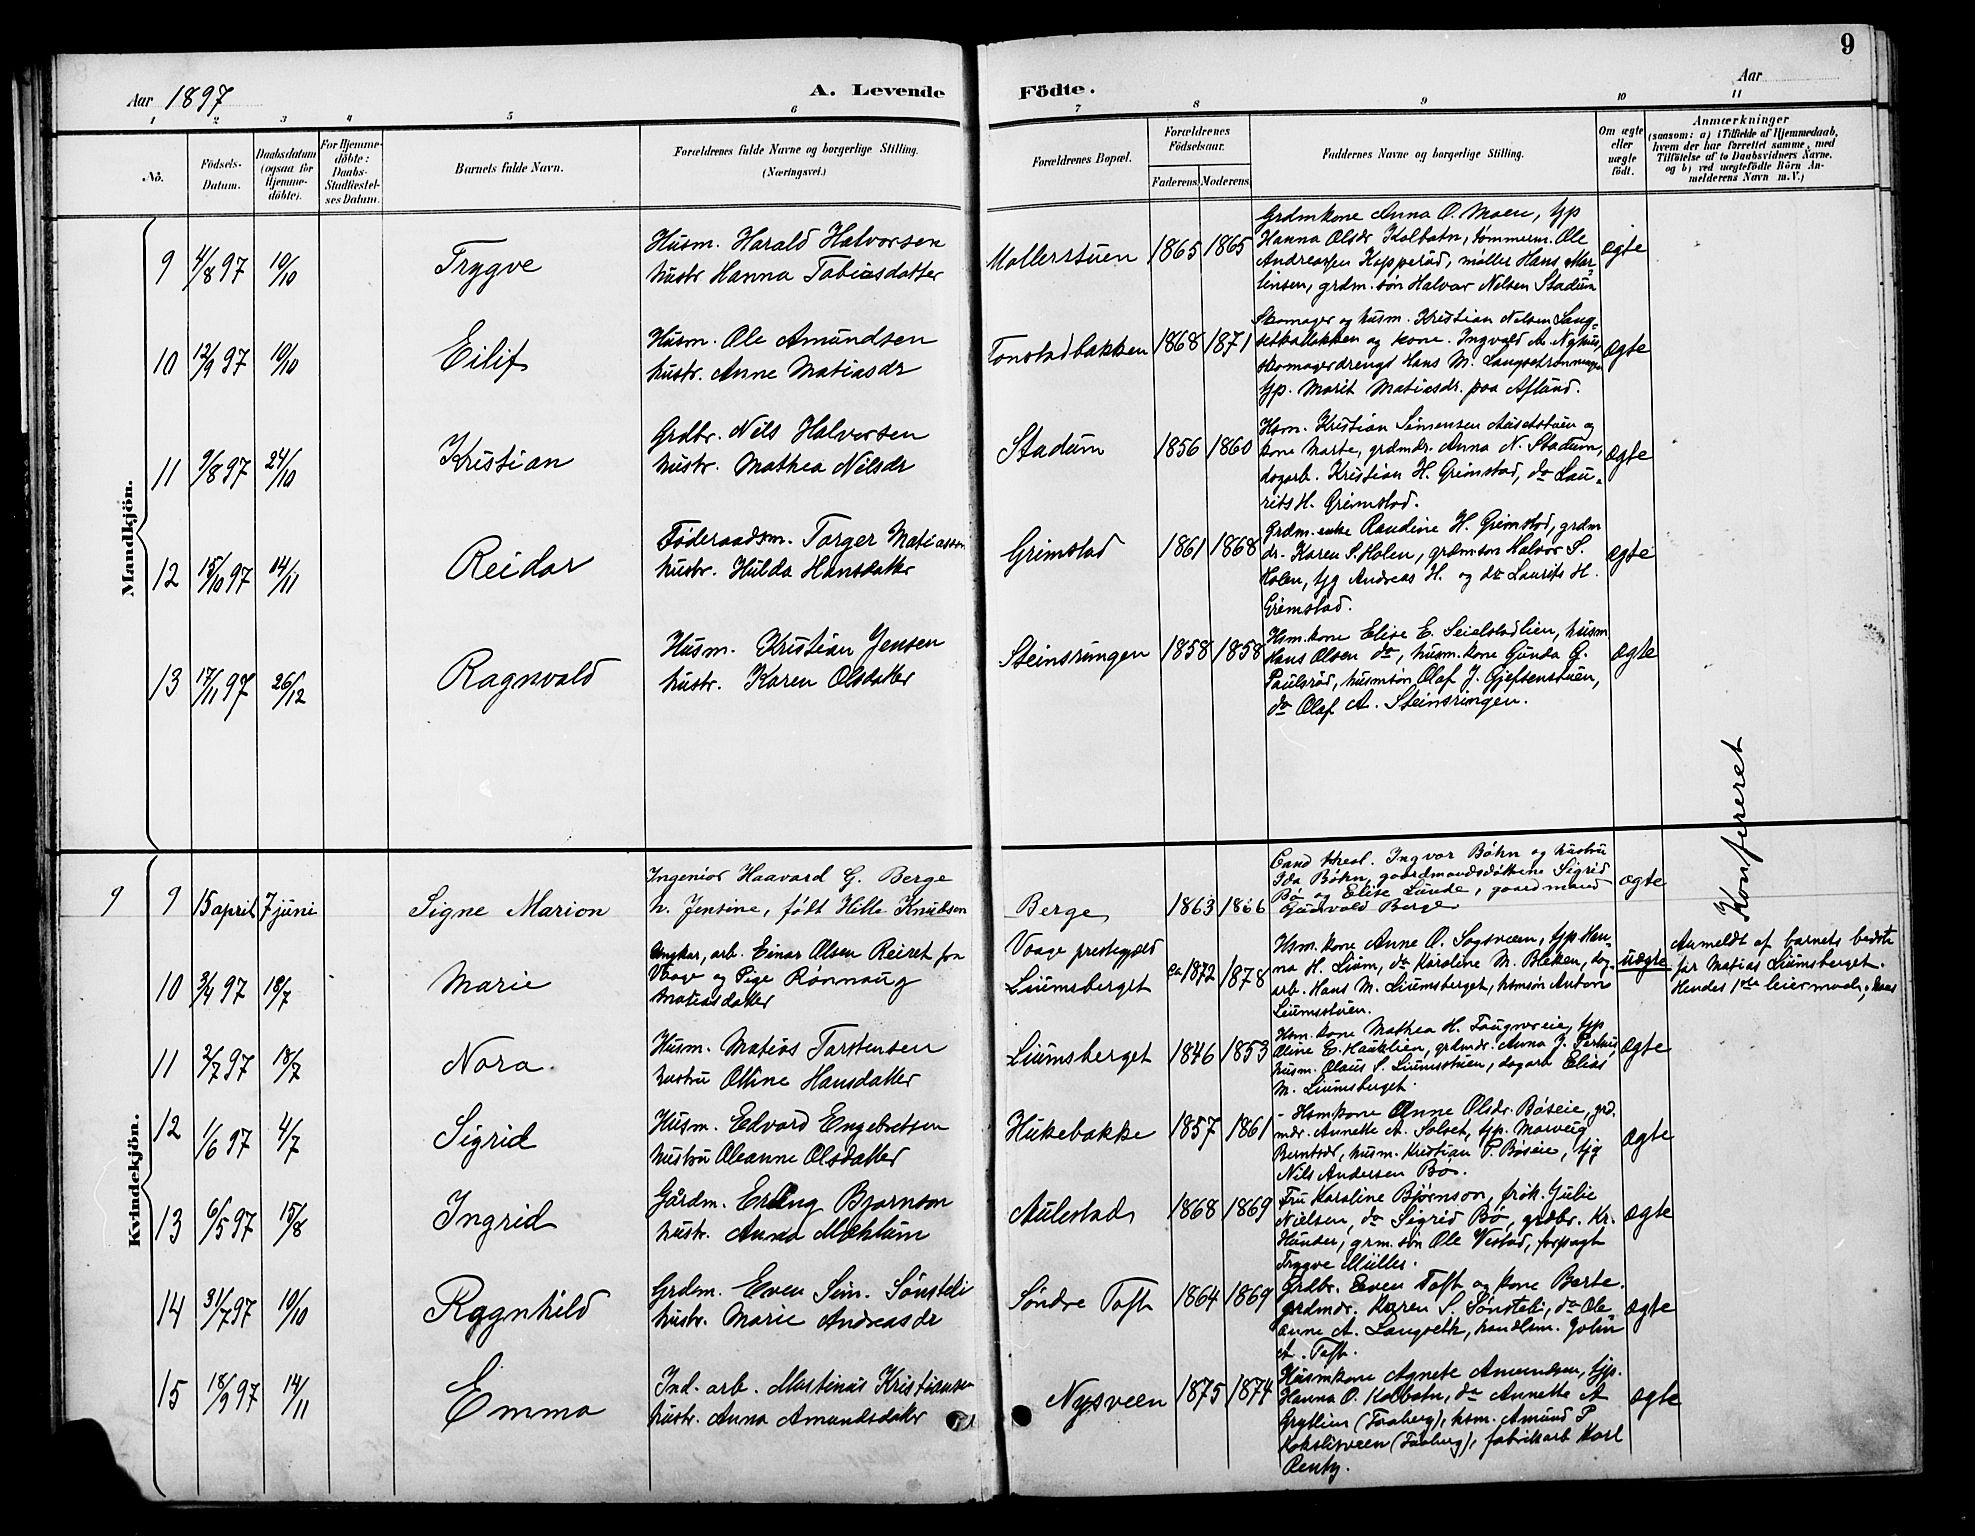 9
Aar 1897
A. Levende Födte.
Aar
1 2 3 4 5 6 7 8 9 10 11
No.
Födsels-Datum.
Daabsdatum (ogsaa for Hjemmedöbte).
For Hjemmedöbte: Daabs-Stadfæstelses Datum.
Barnets fulde Navn.
Forældrenes fulde Navne og borgerlige Stilling.
(Næringsvei.)
Forældrenes Bopæl.
Forældrenes Födselsaar.
Faderens. Moderens.
Faddernes Navne og borgerlige Stilling.
Om ægte eller uægte födt.
Anmærkninger
(saasom: a) i Tilfælde af Hjemmedaab,
hvem der har forrettet samme, med
Tilföielse af to Daabsvidners Navne,
og b) ved uægtefödte Börn Anmelderens Navn m. V.)
Mandkjön.
9 4/8 97 10/10 Trygve
Husm. Harald Halvorsen
hustr Hanna Tobiasdatter
Møllerstuen 1865 1865
Grdmkone Anna O. Moen, tjp
Hanna Olsdr Kolbotn, tømmerm. Ole
Andreassen Kopperud, møller Hans Mar-
tinsen, grdm.søn Halvor Nilsen Stadum
ægte
10 12/9 97 10/10 Eilif
Husm. Ole Amundsen
hustr. Anne Matiasdr
Tonstadbakken 1868 1871
Skomager og husm. Kristian Nilsen Lang-
og kone. Ingvald A. Nyhus,
skomagerdreng Hans M.
tjp. Marit Matiasdr. paa Aflund.
ægte
11 9/8 97 24/10 Kristian
Grdbr. Nils Halvorsen
hustr. Mathea Nilsdr
Stadum 1856 1860
Hsm. Kristian Simensen Ausetstuen og
kone Marte, grdmdr. Anna N. Stadum,
dagarb. Kristian H. Grimstad, do Lau-
rits H. Grimstad.
ægte
12 15/10 97 14/11 Reidar
Føderaadsm. Torger Matiassen
hustr. Hulda Hansdatter
Grimstad 1861 1868
Grdm.enke Randine H. Grimstad, grdm
dr. Karen S. Holen, grdmsøn Halvor S.
Holen, tjg Andreas H. og do Laurits H.
Grimstad.
ægte
13 17/11 97 26/12 Ragnvald
Husm. Kristian Jensen
hustr. Karen Olsdatter
Steinsringen 1858 1858
Hsm.kone Elise E. Seielstadlien, husm
Hans Olsen do, husm.kone Gunda G.
Paulsrød, husmsøn Olaf J. Gjefsenstuen,
do Olaf A. Steinsringen.
ægte
Konfereret
Kvindekjön.
9 9 15 april 7 juni Signe Marion
Ingeniør Haavard G. Berge
h. Jensine, født Hille Knudsen
Berge 1863 1866
Cand. theol. Ingvar Bøhn og hustru
Ida Bøhn, gaardmandsdøttrene Sigrid
Bø og Elise Lunde, gaardmand
Gudvald Berge
ægte
10 3/4 97 18/7 Marie
Ungkar, arb. Einar Olsen Reiret fra
Vaage og Pige Rønnaug
Matiasdatter
Vaage prestegjeld
Liumsberget ca 1872 1878
Hsm.kone Anne O. Sogsveen, tjp Han-
na H. Lium, do Karoline M. Bleken, dag-
arb. Hans M. Liumsberget, hsmsøn Anton
Liumsstuen.
uægte
Anmeldt af barnets bedste
far Matias Liumsberget.
Hendes 1ste leiermaal,
11 2/7 97 18/7 Nora.
Husm. Matias Torstensen
hustru Oline Hansdatter
Liumsberget 1846 1853
Hsm.kone Mathea H. Faugnreie, tjp
Oline E. Hauklien, grdmdr. Anna J.
husm. Olaus S. Liumsstuen, dagarb Elias
M. Liumsberget.
ægte
12 1/6 97 4/7 Sigrid
Husm. Edvard Engebretsen
hustru Oleanne Olsdatter
Hukebakke 1857 1861
- Hsm.kone Anne Olsdr. Bøseie, grd.
mdr. Annette A. Solvet, tjp. Marveig
Berntsdr, husm. Kristian P. Bøseie, tjg
Nils Andersen Bø.
ægte
13 6/5 97 15/8 Ingrid
Gårdm. Erling Bjørnson
hustr. Anna Mehlum
Aulestad 1868 1869
Fru Karoline Bjørnson, frøk. Julie
Nielsen, do Sigrid Bø, grdbr. Kr.
Hunder, grm.søn Ole Vestad, forpagt
Trygve Müller.
ægte
14 31/7 97 10/10 Ragnhild
Grdm. Even Sim. Sønsteli
hustr. Marie Andreasdr
Søndre Toft 1864 1869
Grdbr. Even Toft og kone Berte.
grdmdr. Karen S. Sønsteli, do Ole
anne A. Langseth, handlsm. Johan
A. Toft.
ægte
15 18/9 97 14/11 Emma
Ind. arb. Martinus Kristiansen
hustr. Anna Amundsdatter
Nysveen 1875 1874
Husmkone Agnete Amundsen, tjp.
Hanna O. Kolbotn, do Annette A
Gryllien (Faaberg), hsm. Amund P
Kokslisveen (Faaberg), fabrikarb Karl
Renty.
ægte